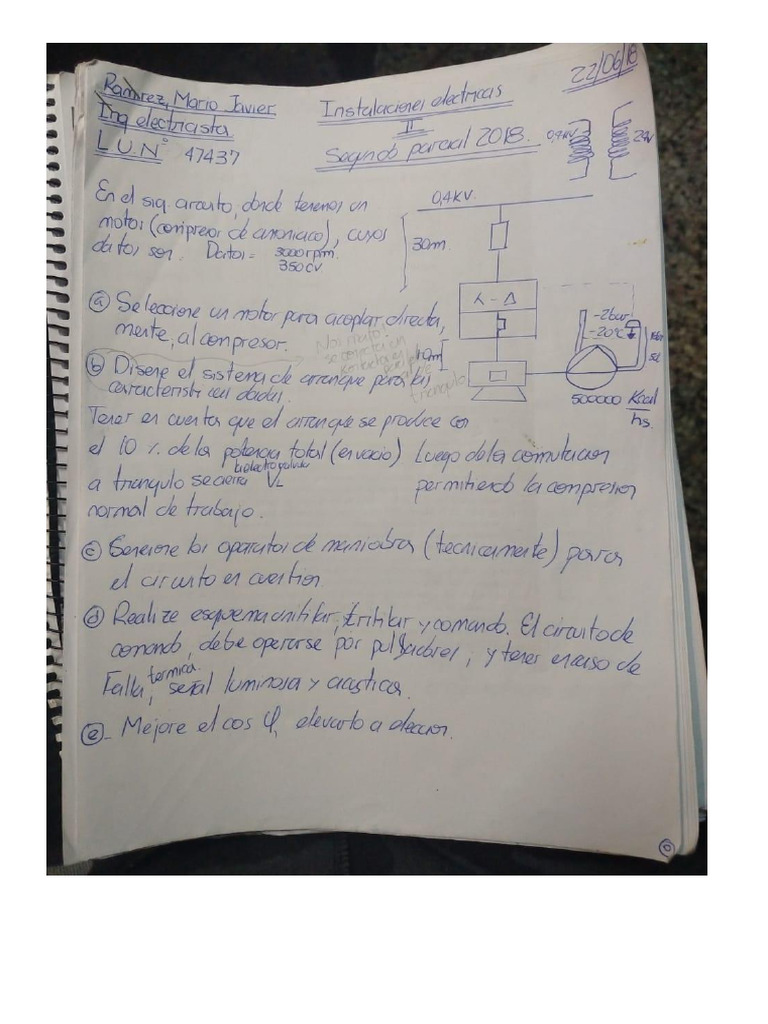 22/06/18
Ramirez, Mario Javier
Ing electricista
L.U.N° 47437
Instalaciones electricas
II
Segundo parcial 2018.
En el sig. circuito, donde tenemos un
motor (compresor de amoniaco), cuyos
datos son. Datos = 3000 rpm.
350 CV
0,4 KV.
30m.
λ - Δ
10m
-2bar
-20°C
500000 Kcal
hs.
ⓐ Seleccione un motor para acoplar, directa,
mente, al compresor.
ⓑ Diseñe el sistema de arranque para las
caracteristicas dadas.
Tener en cuenta que el arranque se produce con
el 10 % de la potencia total (en vacio) Luego de la conmutacion
a triangulo se cierra la electrovalvula VL permitiendo la compresion
normal de trabajo.
ⓒ Seleccione los aparatos de maniobra (tecnicamente) para
el circuito en cuestion.
ⓓ Realize esquema unifilar, trifilar y comando. El circuito de
comando, debe operarse por pulsadores, y tener en caso de
Falla termica, señal luminosa y acustica.
ⓔ- Mejore el cos φ, elevarlo a eleccion.